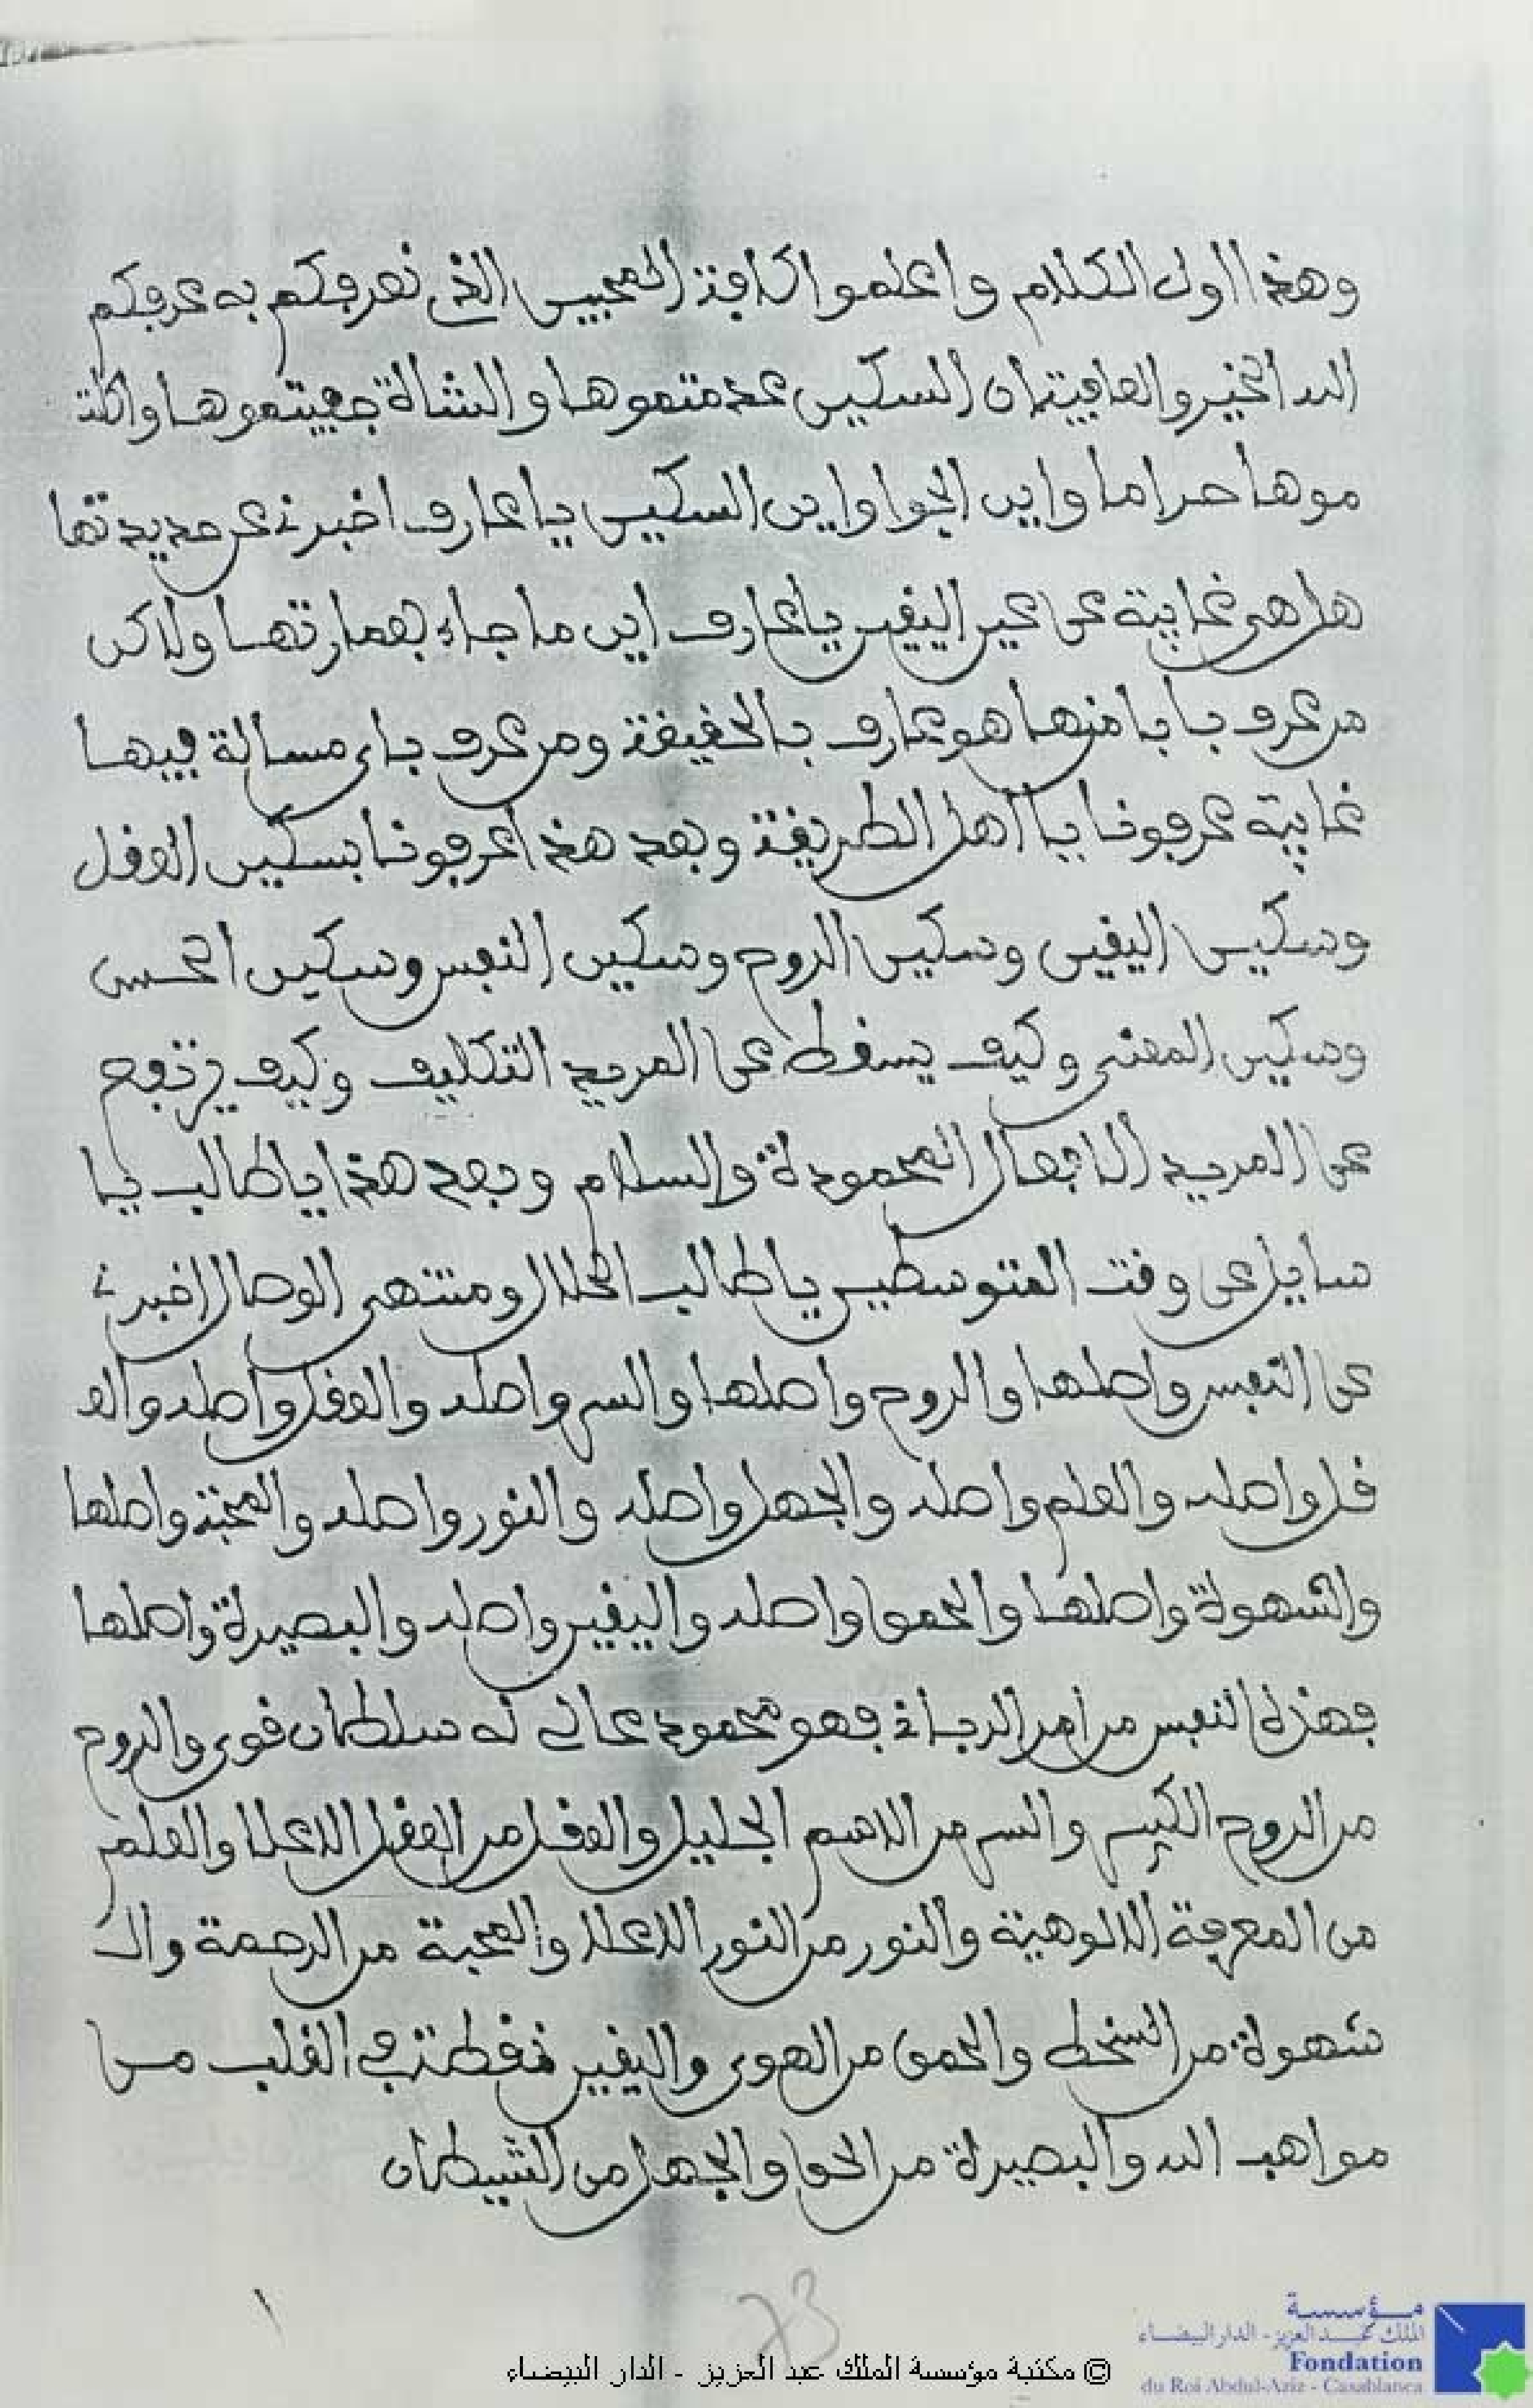 وهذا اول الكلام واعلموا كافة المحبين الذي نعرفكم به عرفكم
الله الخير والعافية ان السكين عدمتموها والشاة جفيتموها واكلت
موها حراما واين الجوا واين السكين يا عارف اخبرني عن حديدتها
هل هي غايبة عن عين اليقين يا عارف اين ما جاء بعمارتها ولاكن
من عرف بابا منها هو عارف بالحقيقة ومن عرف باي مسالة فيها
غايبة عرفونا يا اهل الطريقة وبعد هذا عرفونا بسكين العقل
وسكين اليقين وسكين الروح وسكين النفس وسكين الحس
وسكين المعنى وكيف يسقط عن المريد التكليف وكيف يرتفع
عن المريد الافعال المحمودة والسلام وبعد هذا يا طالب يا
سايل عن وقت المتوسطين يا طالب الحلال ومنتهى الوصال اخبرني
عن النفس واصلها والروح واصلها والسر واصله والعقل واصله والع
قل واصله والعلم واصله والجهل واصله والنور واصله والمحبة واصلها
والشهوة واصلها والحمق واصله واليقين واصله والبصيرة واصلها
فهذه النفس من امر الرباني فهو محمود عالي له سلطان قوي والروح
من الروح الكبير والسر من الاسم الجليل والعقل من العقل الاعلا والعلم
من المعرفة الالوهية والنور من النور الاعلا والمحبة من الرحمة وال
شهوة من السخط والحمق من الهوى واليقين نقطة في القلب من
مواهب الله والبصيرة من الحق والجهل من الشيطان
١
73
مؤسسة
الملك عبد العزيز - الدار البيضاء
Fondation
du Roi Abdul-Aziz - Casablanca
© مكتبة مؤسسة الملك عبد العزيز - الدار البيضاء